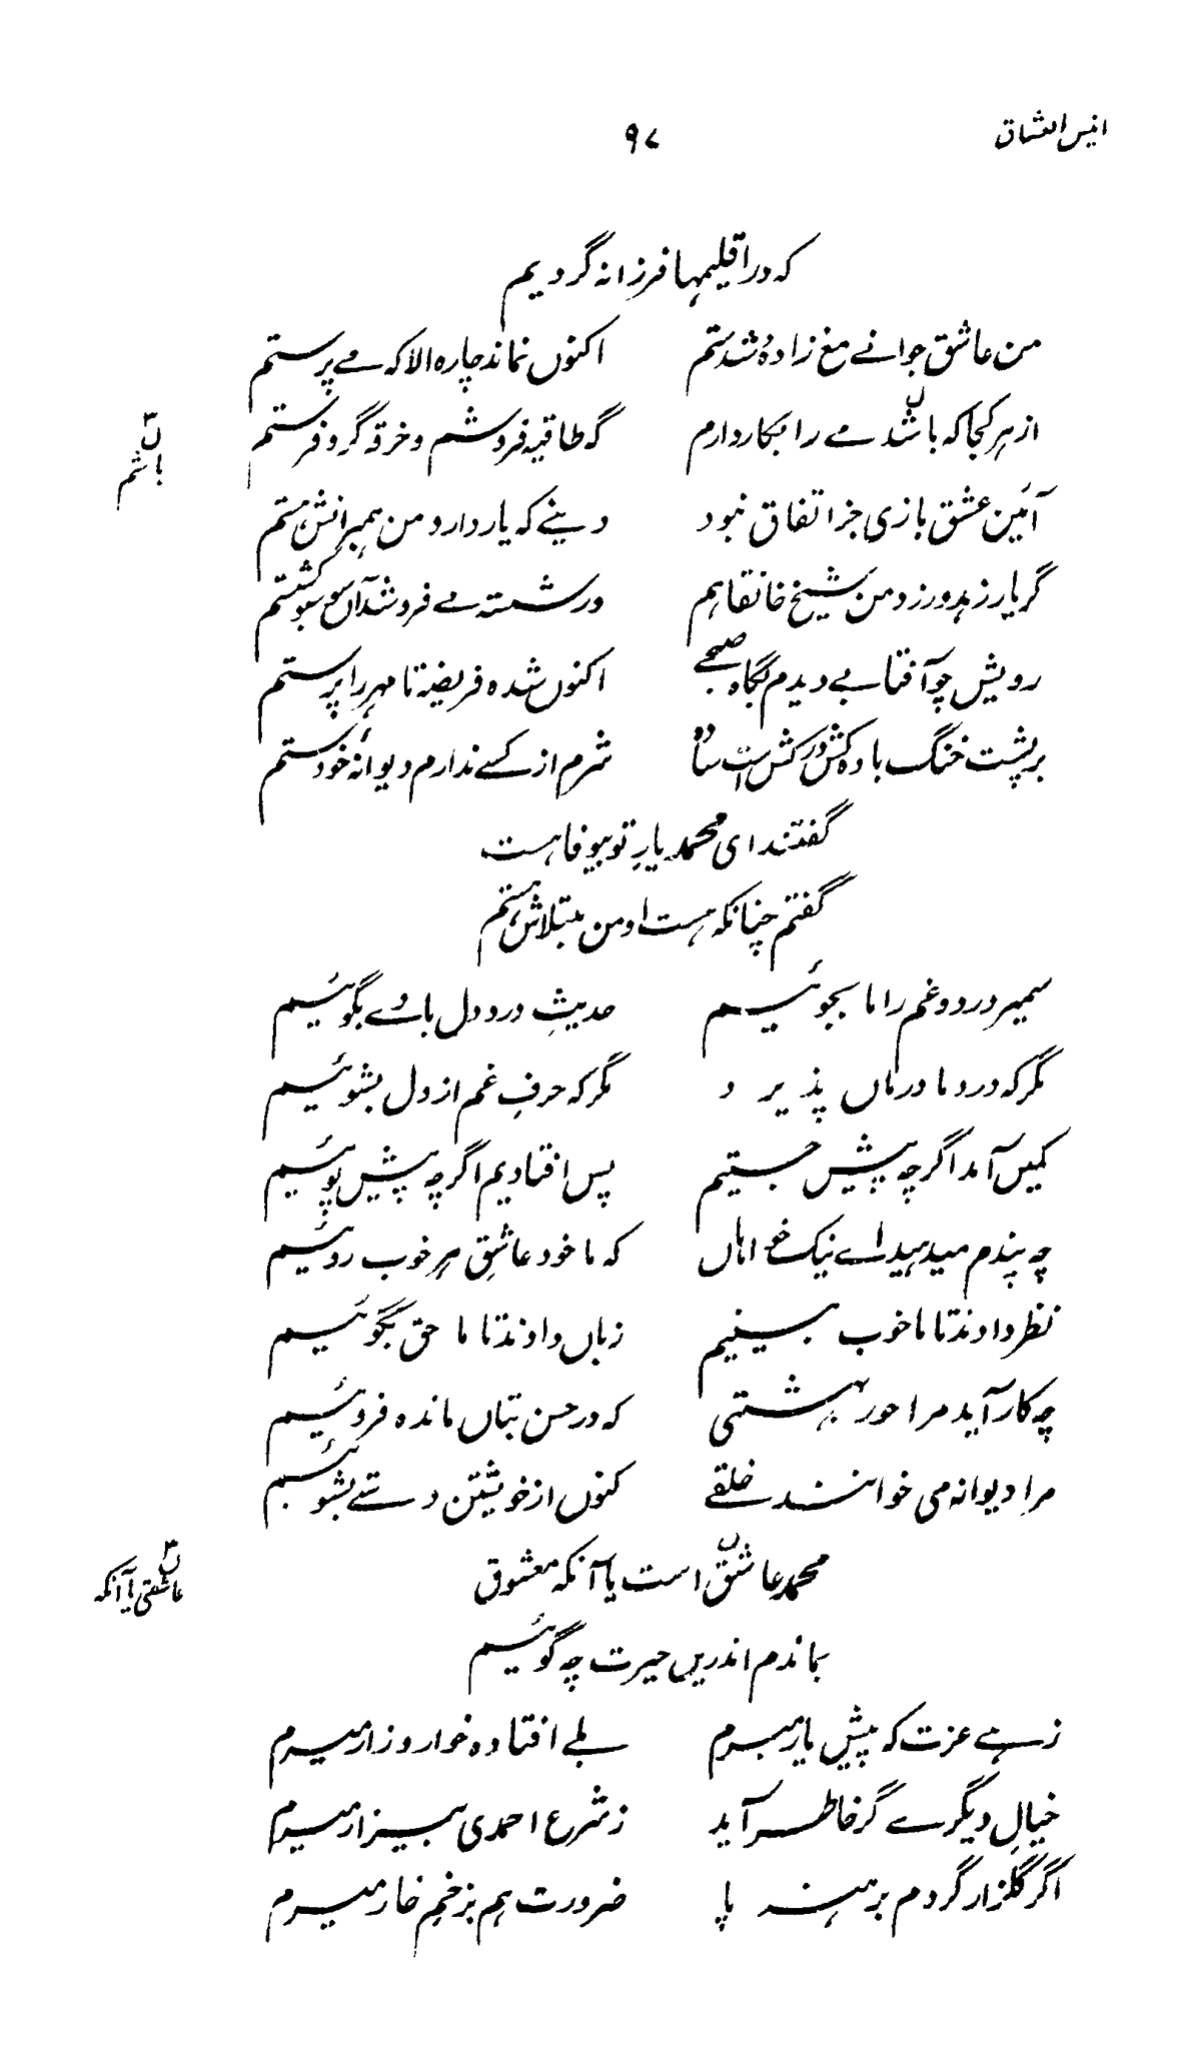 انیس العشاق
۹۷
که در اقلیمها فرزانه گردیم
من عاشق جوانے مغ زادۂ شدستم اکنوں نماند چاره الا که مے پرستم
از هر کجا که باشد مے را بکار دارم گه طاقیه فروشم و خرقه گرو فرستم
باشم
آئین عشق بازی جز اتفاق نبود دینے که یار دارد من همبرانش هستم
گر یار زهد ورزد من شیخ خانقاهم ور شسته مے فروشد آں سو سبو کشستم
رویش چو آفتابے دیدم نگاه صبحے اکنوں شده فریضه تا مهر را پرستم
بر پشت خنگ باده کش در کش است ساده شرم از کسے ندارم دیوانۂ خود ستم
گفتند ای محمد یارِ تو بیوفا هست
گفتم چنانکه هست او من مبتلاش هستم
سمیر درد و غم را ما بجوئیم حدیثِ درد دل با وے بگوئیم
مگر که درد ما درماں پذیرد مگر که حرفِ غم از دل بشوئیم
کمیں آمد اگرچه پیش جستیم پس افتادیم اگرچه پیش پوئیم
چه پندم میدهید اے نیک خواهاں که ما خود عاشقِ هر خوب روئیم
نظر دادند تا ما خوب بینیم زباں دادند تا ما حق بگوئیم
چه کار آید مرا حور بهشتی که در حسن بتاں مانده فروئیم
مرا دیوانه می خوانند خلقے کنوں از خویشتن دستے بشوئیم
محمد عاشق است یا آنکه معشوق
عاشقی یا آنکه
بماندم اندریں حیرت چه گوئیم
زهے عزت که پیش یار میرم بلے افتاده خوار و زار میرم
خیالِ دیگرے گر خاطر آید ز شرع احمدی بیزار میرم
اگر گلزار گردم برهنه پا ضرورت هم بزخمِ خار میرم